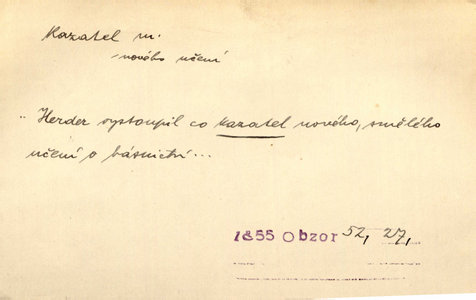 Kazatel m.
nového učení
„Herder vystoupil co kazatel nového, smělého
učení o básnictví...
1855 Obzor 52, 27,